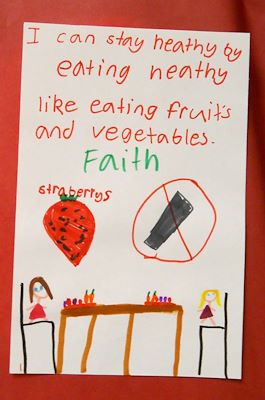 I can stay heathy by
eating heathy
like eating fruits
and vegetables.
Faith
straberrys